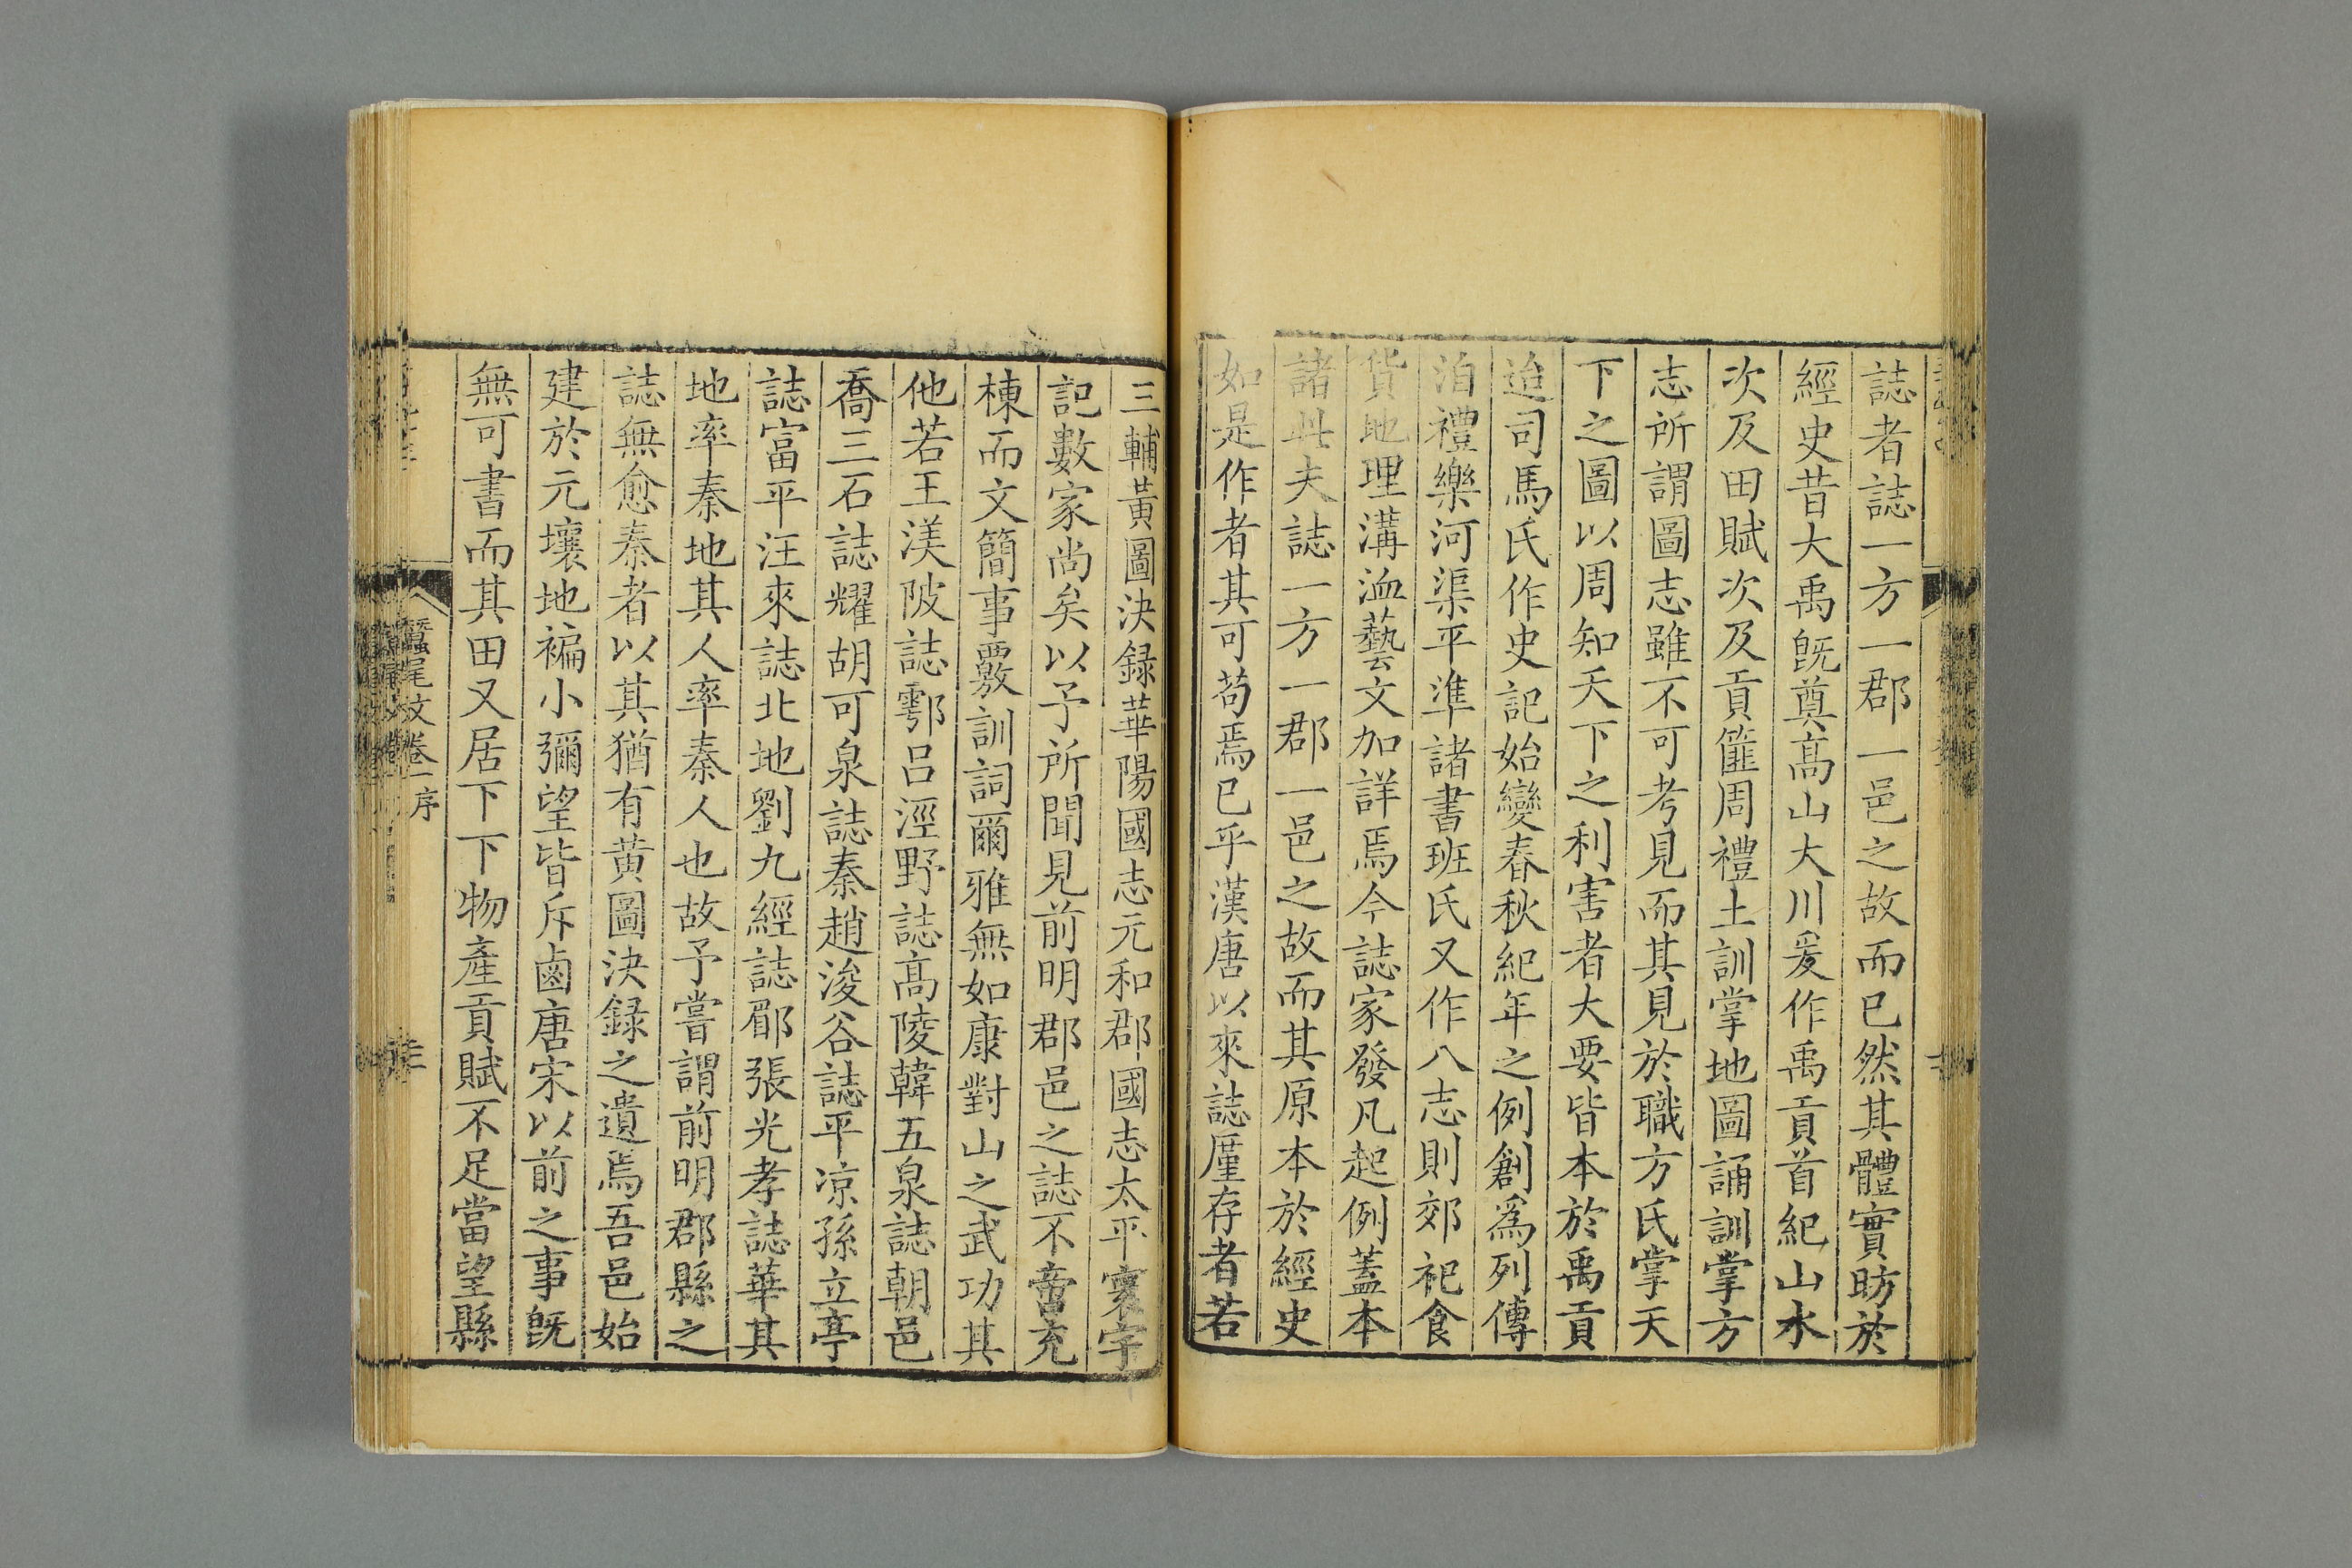 誌者誌一方一郡一邑之故而已然其體實昉於
經史昔大禹旣奠高山大川爰作禹貢首紀山水
次及田賦次及貢篚周禮土訓掌地圖誦訓掌方
志所謂圖志雖不可考見而其見於職方氏掌天
下之圖以周知天下之利害者大要皆本於禹貢
迨司馬氏作史記始變春秋紀年之例創爲列傳
洎禮樂河渠平準諸書班氏又作八志則郊祀食
貨地理溝洫藝文加詳焉今誌家發凡起例蓋本
諸此夫誌一方一郡一邑之故而其原本於經史
如是作者其可苟焉已乎漢唐以來誌厪存者若
三輔黃圖決録華陽國志元和郡國志太平寰宇
記數家尚矣以予所聞見前明郡邑之誌不啻充
棟而文簡事覈訓詞爾雅無如康對山之武功其
他若王渼陂誌鄠呂涇野誌高陵韓五泉誌朝邑
喬三石誌耀胡可泉誌秦趙浚谷誌平凉孫立亭
誌富平汪來誌北地劉九經誌郿張光孝誌華其
地率秦地其人率秦人也故予嘗謂前明郡縣之
誌無愈秦者以其猶有黄圖決録之遺焉吾邑始
建於元壤地褊小彌望皆斥鹵唐宋以前之事旣
無可書而其田又居下下物產貢賦不足當望縣
蠶尾文卷一序